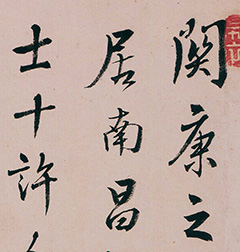 関康之
居南昌
士十許